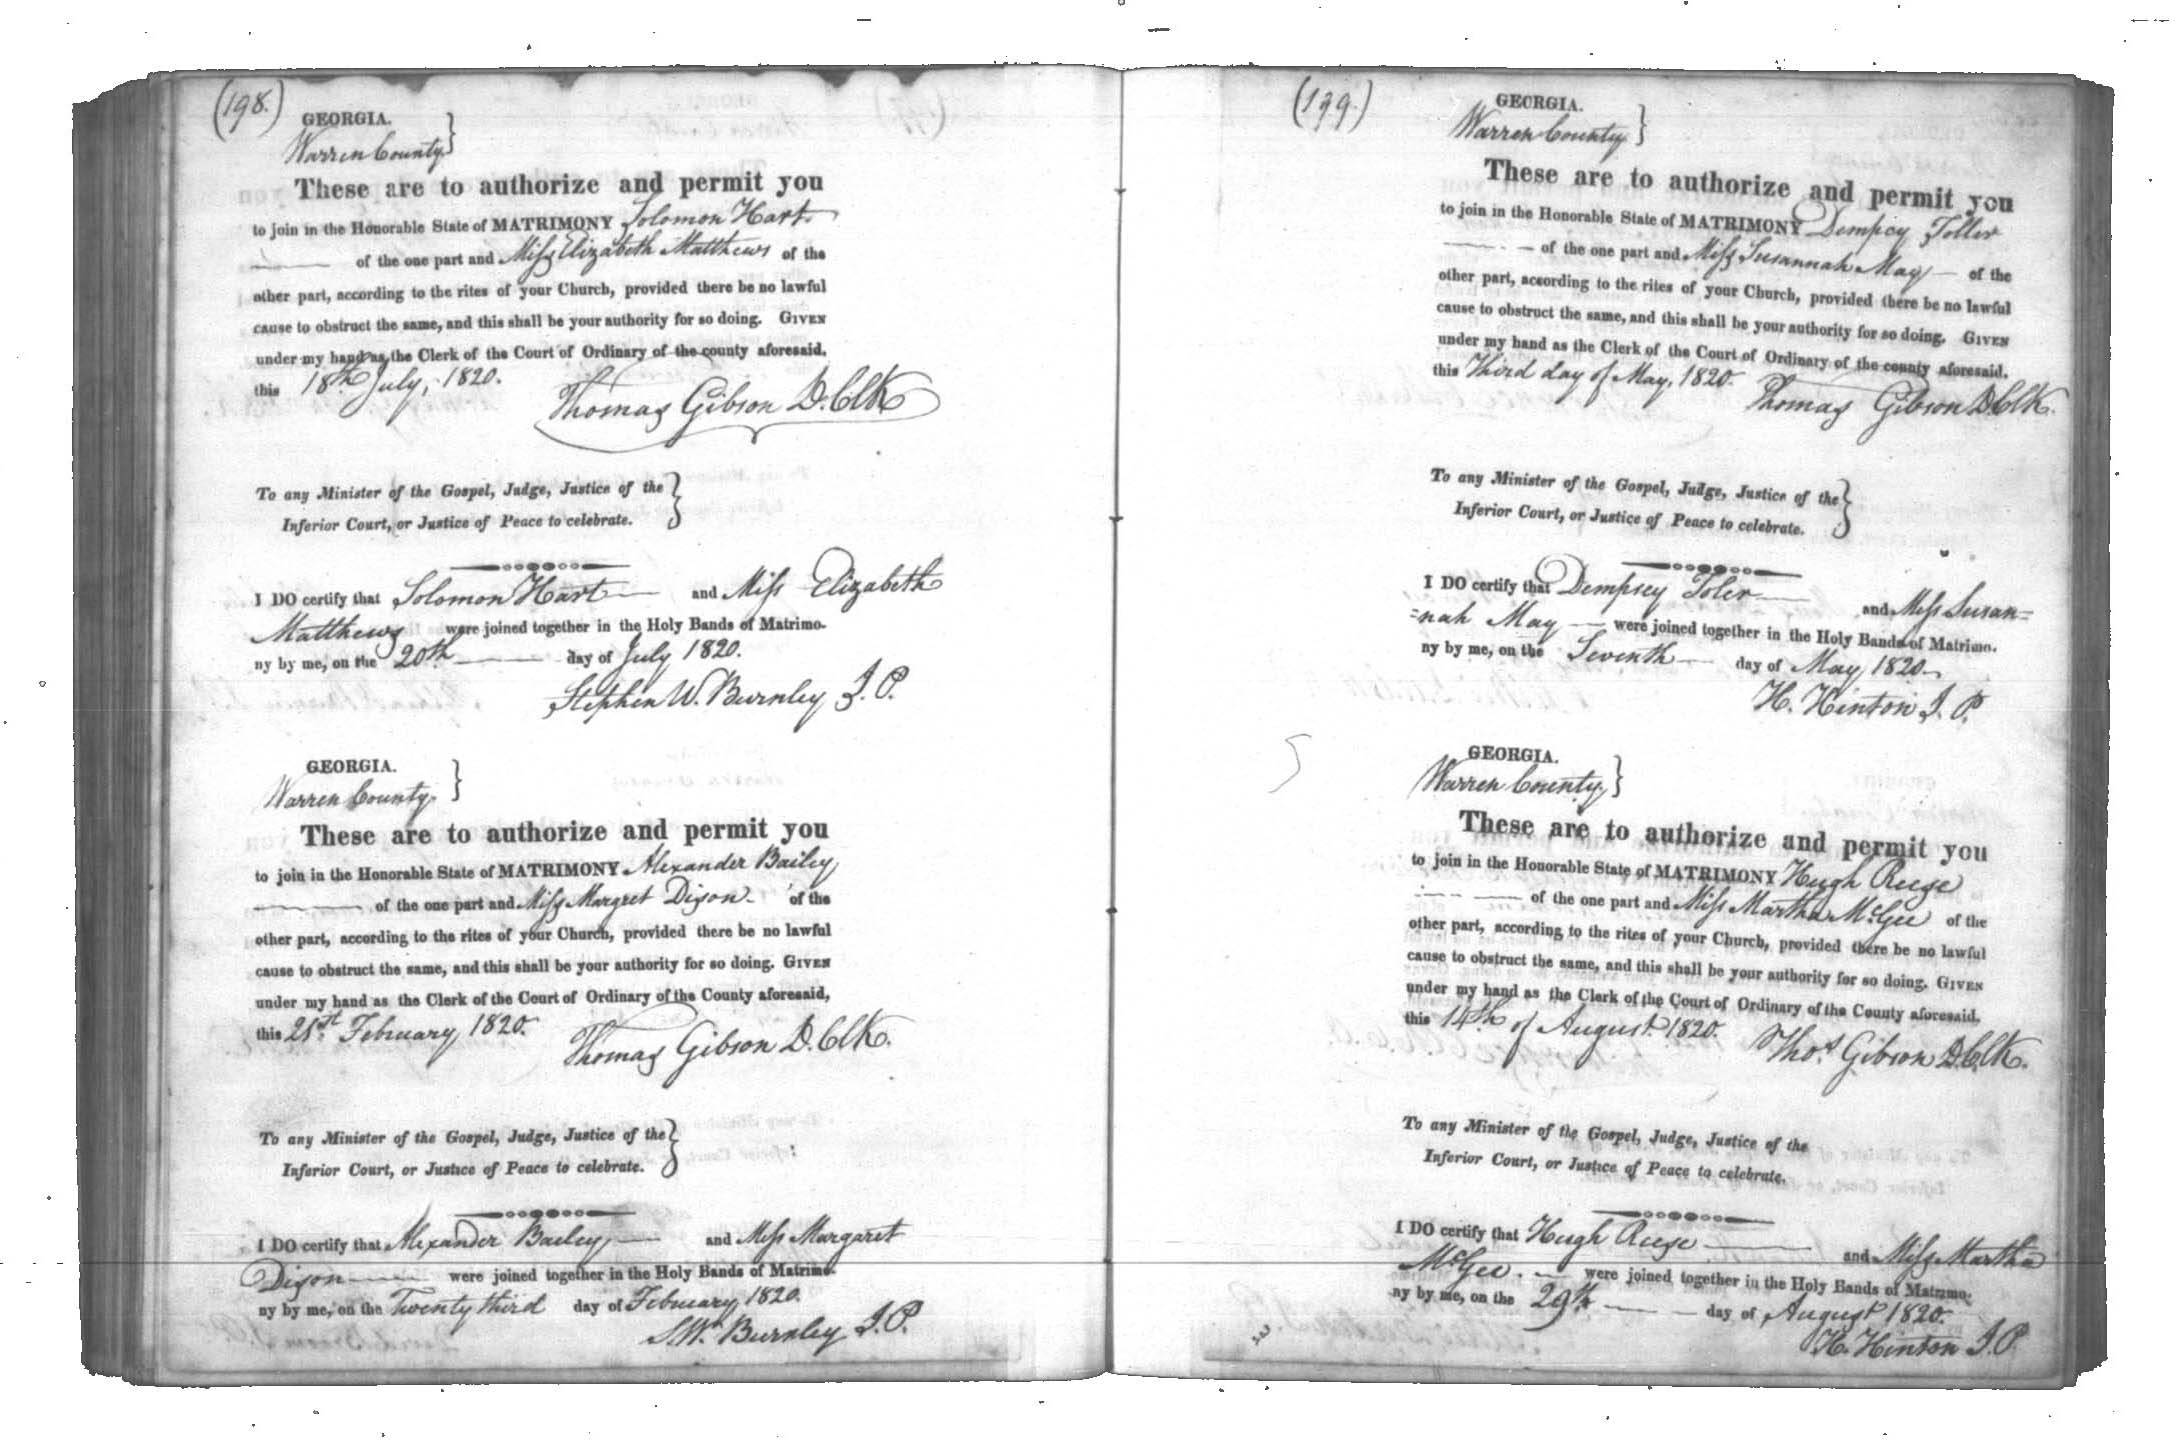 (198.)
GEORGIA.
Warren County
These are to authorize and permit you
to join in the Honorable State of MATRIMONY Solomon Hart
of the one part and Miss Elizabeth Matthews of the
other part, according to the rites of your Church, provided there be no lawful
cause to obstruct the same, and this shall be your authority for so doing. GIVEN
under my hand as the Clerk of the Court of Ordinary of the county aforesaid.
this 18th July, 1820.
Thomas Gibson D. ClK
To any Minister of the Gospel, Judge, Justice of the
Inferior Court, or Justice of Peace to celebrate.
I DO certify that Solomon Hart and Miss Elizabeth
Matthews were joined together in the Holy Bands of Matrimo-
ny by me, on the 20th day of July 1820.
Stephen W. Burnley J. P.
GEORGIA.
Warren County.
These are to authorize and permit you
to join in the Honorable State of MATRIMONY Alexander Bailey
of the one part and Miss Margret Dixon of the
other part, according to the rites of your Church, provided there be no lawful
cause to obstruct the same, and this shall be your authority for so doing. GIVEN
under my hand as the Clerk of the Court of Ordinary of the County aforesaid,
this 21st February 1820.
Thomas Gibson D. ClK.
To any Minister of the Gospel, Judge, Justice of the
Inferior Court, or Justice of Peace to celebrate.
I DO certify that Alexander Bailey and Miss Margaret
Dixon were joined together in the Holy Bands of Matrimo-
ny by me, on the Twenty third day of February 1820.
S.W. Burnley J. P.
(199.)
GEORGIA.
Warren County
These are to authorize and permit you
to join in the Honorable State of MATRIMONY Dempcy Toller
of the one part and Miss Susannah May of the
other part, according to the rites of your Church, provided there be no lawful
cause to obstruct the same, and this shall be your authority for so doing. GIVEN
under my hand as the Clerk of the Court of Ordinary of the county aforesaid.
this Third day of May, 1820.
Thomas Gibson D. ClK.
To any Minister of the Gospel, Judge, Justice of the
Inferior Court, or Justice of Peace to celebrate.
I DO certify that Dempsey Toler and Miss Susan=
=nah May were joined together in the Holy Bands of Matrimo-
ny by me, on the Seventh day of May 1820
H. Hinton J. P.
GEORGIA.
Warren County
These are to authorize and permit you
to join in the Honorable State of MATRIMONY Hugh Reese
of the one part and Miss Martha McGee of the
other part, according to the rites of your Church, provided there be no lawful
cause to obstruct the same, and this shall be your authority for so doing. GIVEN
under my hand as the Clerk of the Court of Ordinary of the County aforesaid.
this 14th of August 1820.
Thos. Gibson D. ClK.
To any Minister of the Gospel, Judge, Justice of the
Inferior Court, or Justice of Peace to celebrate.
I DO certify that Hugh Reese and Miss Martha
McGee. were joined together in the Holy Bands of Matrimo-
ny by me, on the 29th day of August 1820.
H. Hinton J. P.